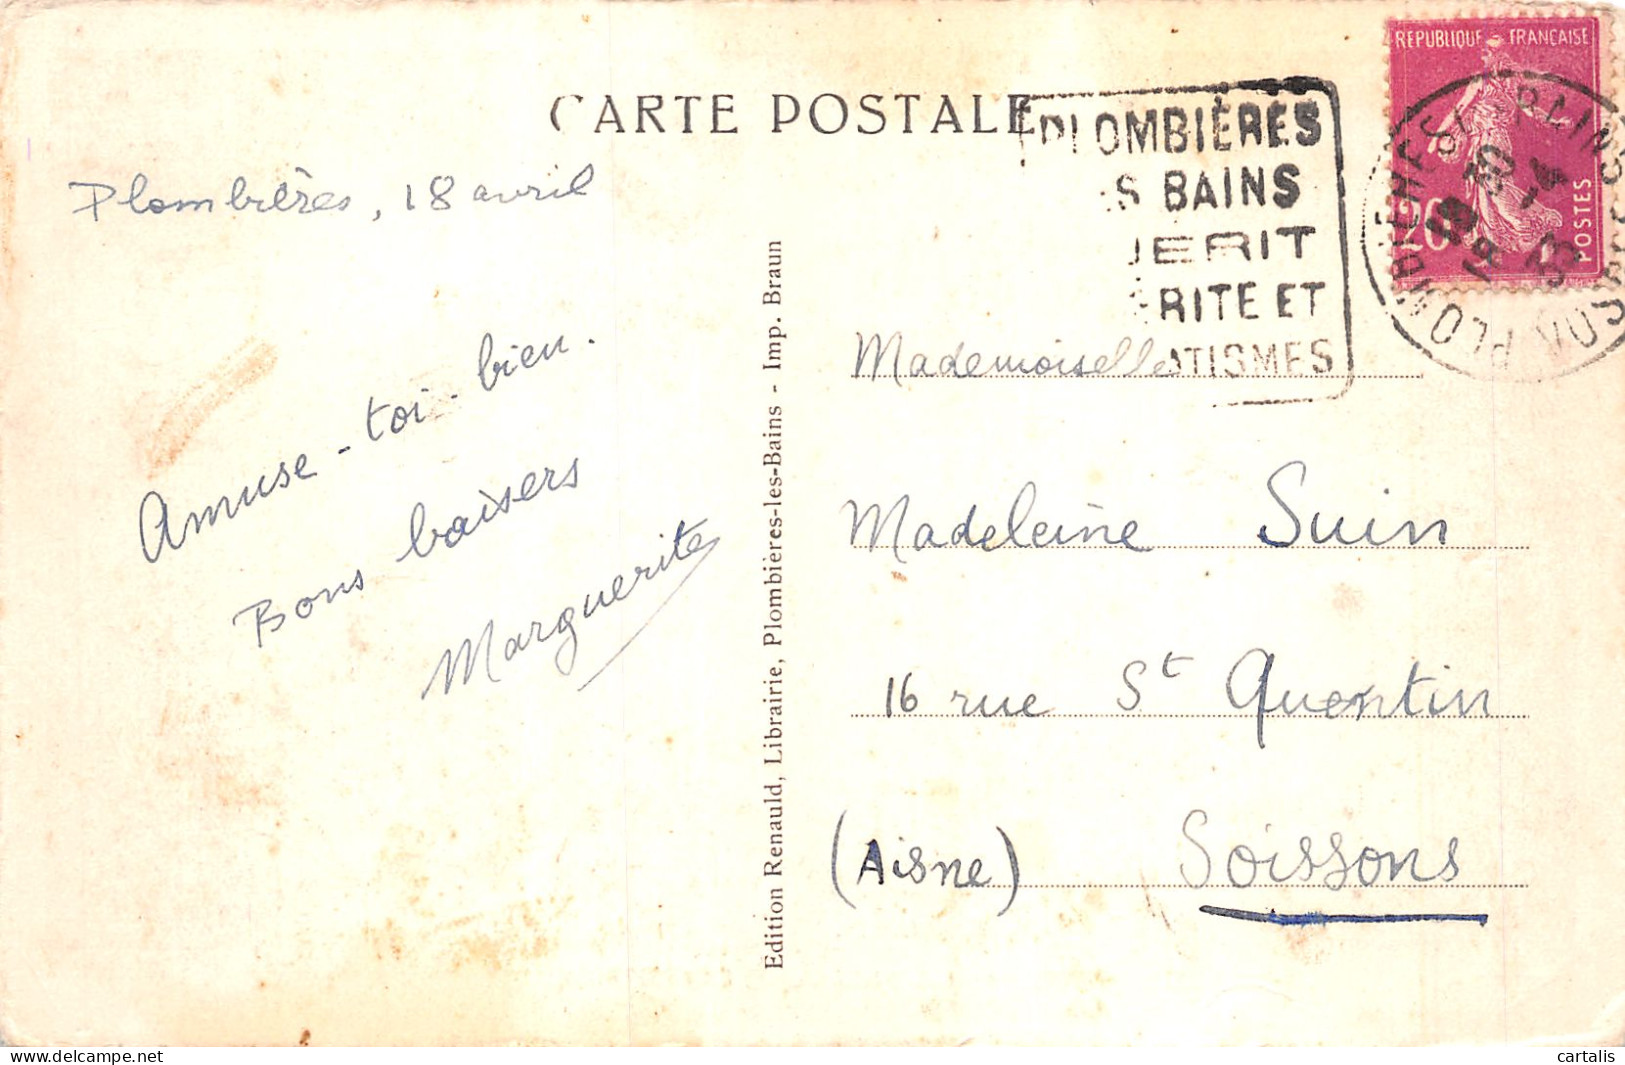 CARTE POSTALE
PLOMBIÈRES
BAINS
ET
REPUBLIQUE FRANÇAISE
20
POSTES
Plombières, 18 avril
Amuse-toi-bien.
Bons baisers
Marguerite
Edition Renauld, Librairie, Plombières-les-Bains - Imp. Braun
Mademoiselle
Madeleine Suin
16 rue St Quentin
(Aisne) Soissons
cartalis